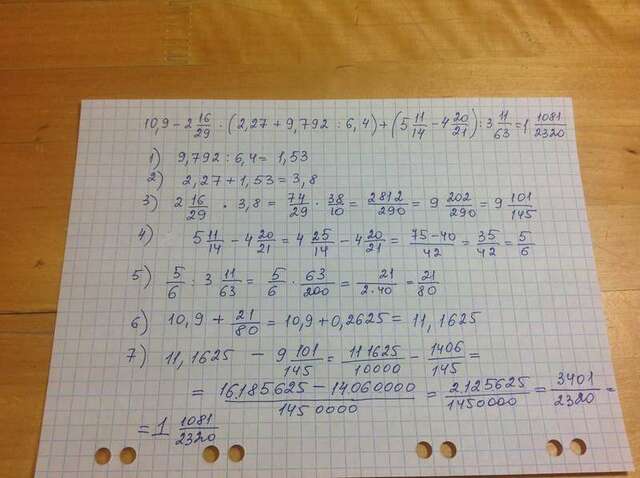 10,9 - 2 16/29 : (2,27 + 9,792 : 6,4) + (5 11/14 - 4 20/21) : 3 11/63 = 1 1081/2320
1) 9,792 : 6,4 = 1,53
2) 2,27 + 1,53 = 3,8
3) 2 16/29 · 3,8 = 74/29 · 38/10 = 2812/290 = 9 202/290 = 9 101/145
4) 5 11/14 - 4 20/21 = 4 25/14 - 4 20/21 = 75-40/42 = 35/42 = 5/6
5) 5/6 : 3 11/63 = 5/6 · 63/200 = 21/2·40 = 21/80
6) 10,9 + 21/80 = 10,9 + 0,2625 = 11,1625
7) 11,1625 - 9 101/145 = 111625/10000 - 1406/145 =
= 16185625 - 14060000/1450000 = 2125625/1450000 = 3401/2320 =
= 1 1081/2320